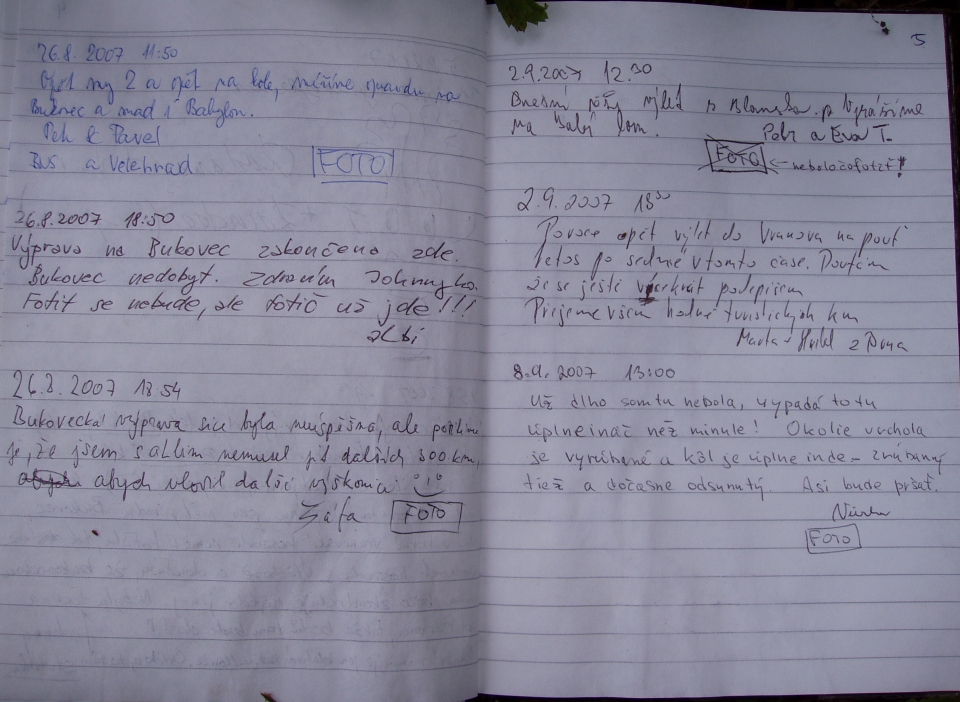 26.8. 2007 11:50
Opět my 2 a opět na kole, míříme opravdu na
Bukovec a snad i Babylon.
Petr & Pavel
Bus a Velehrad FOTO
26.8.2007 18:50
Výprava na Bukovec zakončena zde.
Bukovec nedobyt. Zdravím
Fotit se nebude, ale fotič už jde!!!
26.8.2007 18:54
Bukovecká výprava sice byla neúspěšná, ale
je, že jsem s nemusel jít dalších 300 km,
abych další
FOTO
5
2.9.2007 12.30
Dnešní pěší výlet z Blanska.
na Babí lom.
Petr a Eva T.
FOTO ← nebolo čo fotiť!
2.9.2007 18³⁰
opět výlet do Vranova na pouť
letos po sedmé v tomto čase. Doufám
že se ještě víckrát podepíšem
Přejeme všem hodně turistických km
z Brna
8.9.2007 13:00
Už dlho som tu nebola, vypadá to tu
úplne ináč než minule! Okolie vrchola
je vyrúbané a kôl je úplne inde - zrúbaný
tiež a dočasne odsunutý. Asi bude pršať.
FOTO